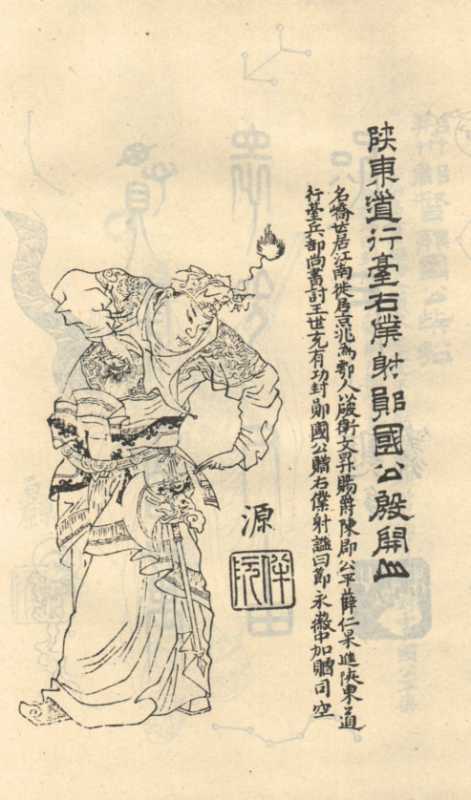 陝東道行臺右僕射鄖國公殷開山
名嶠世居江南徙居京兆為鄠人以破衛文昇賜爵陳郡公平薛仁杲進陝東道
行臺兵部尚書討王世充有功封鄖國公贈右僕射謚曰節永徽中加贈司空
源
伴阮